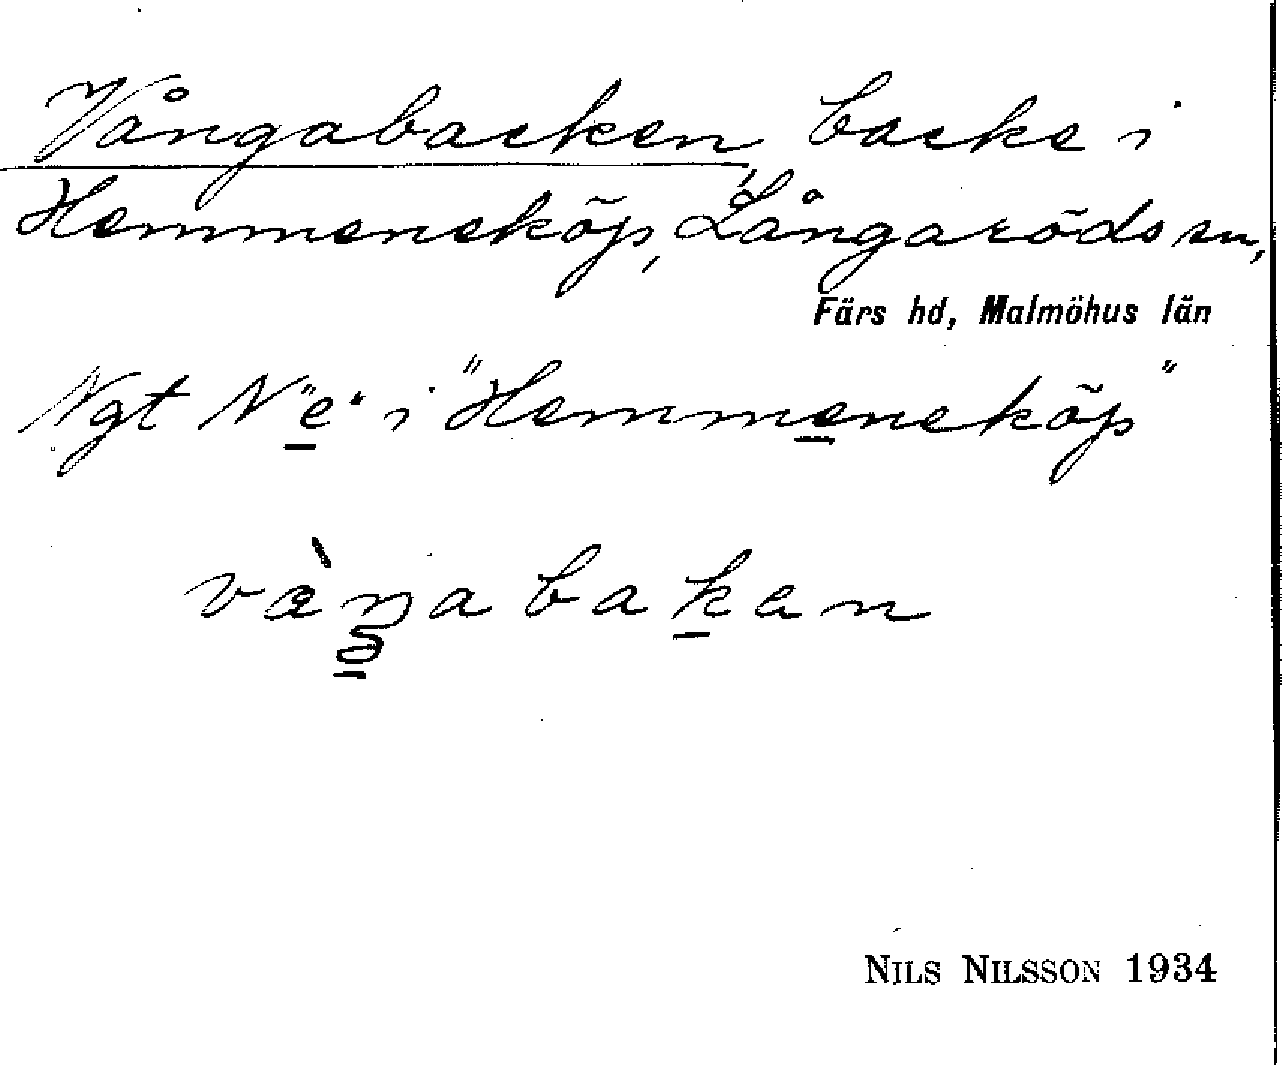 Vångabacken, backe i
Hemmeneköp, Långaröds sn,
Färs hd, Malmöhus län
Ngt N "e" i "Hemmeneköp"
NILS NILSSON 1934